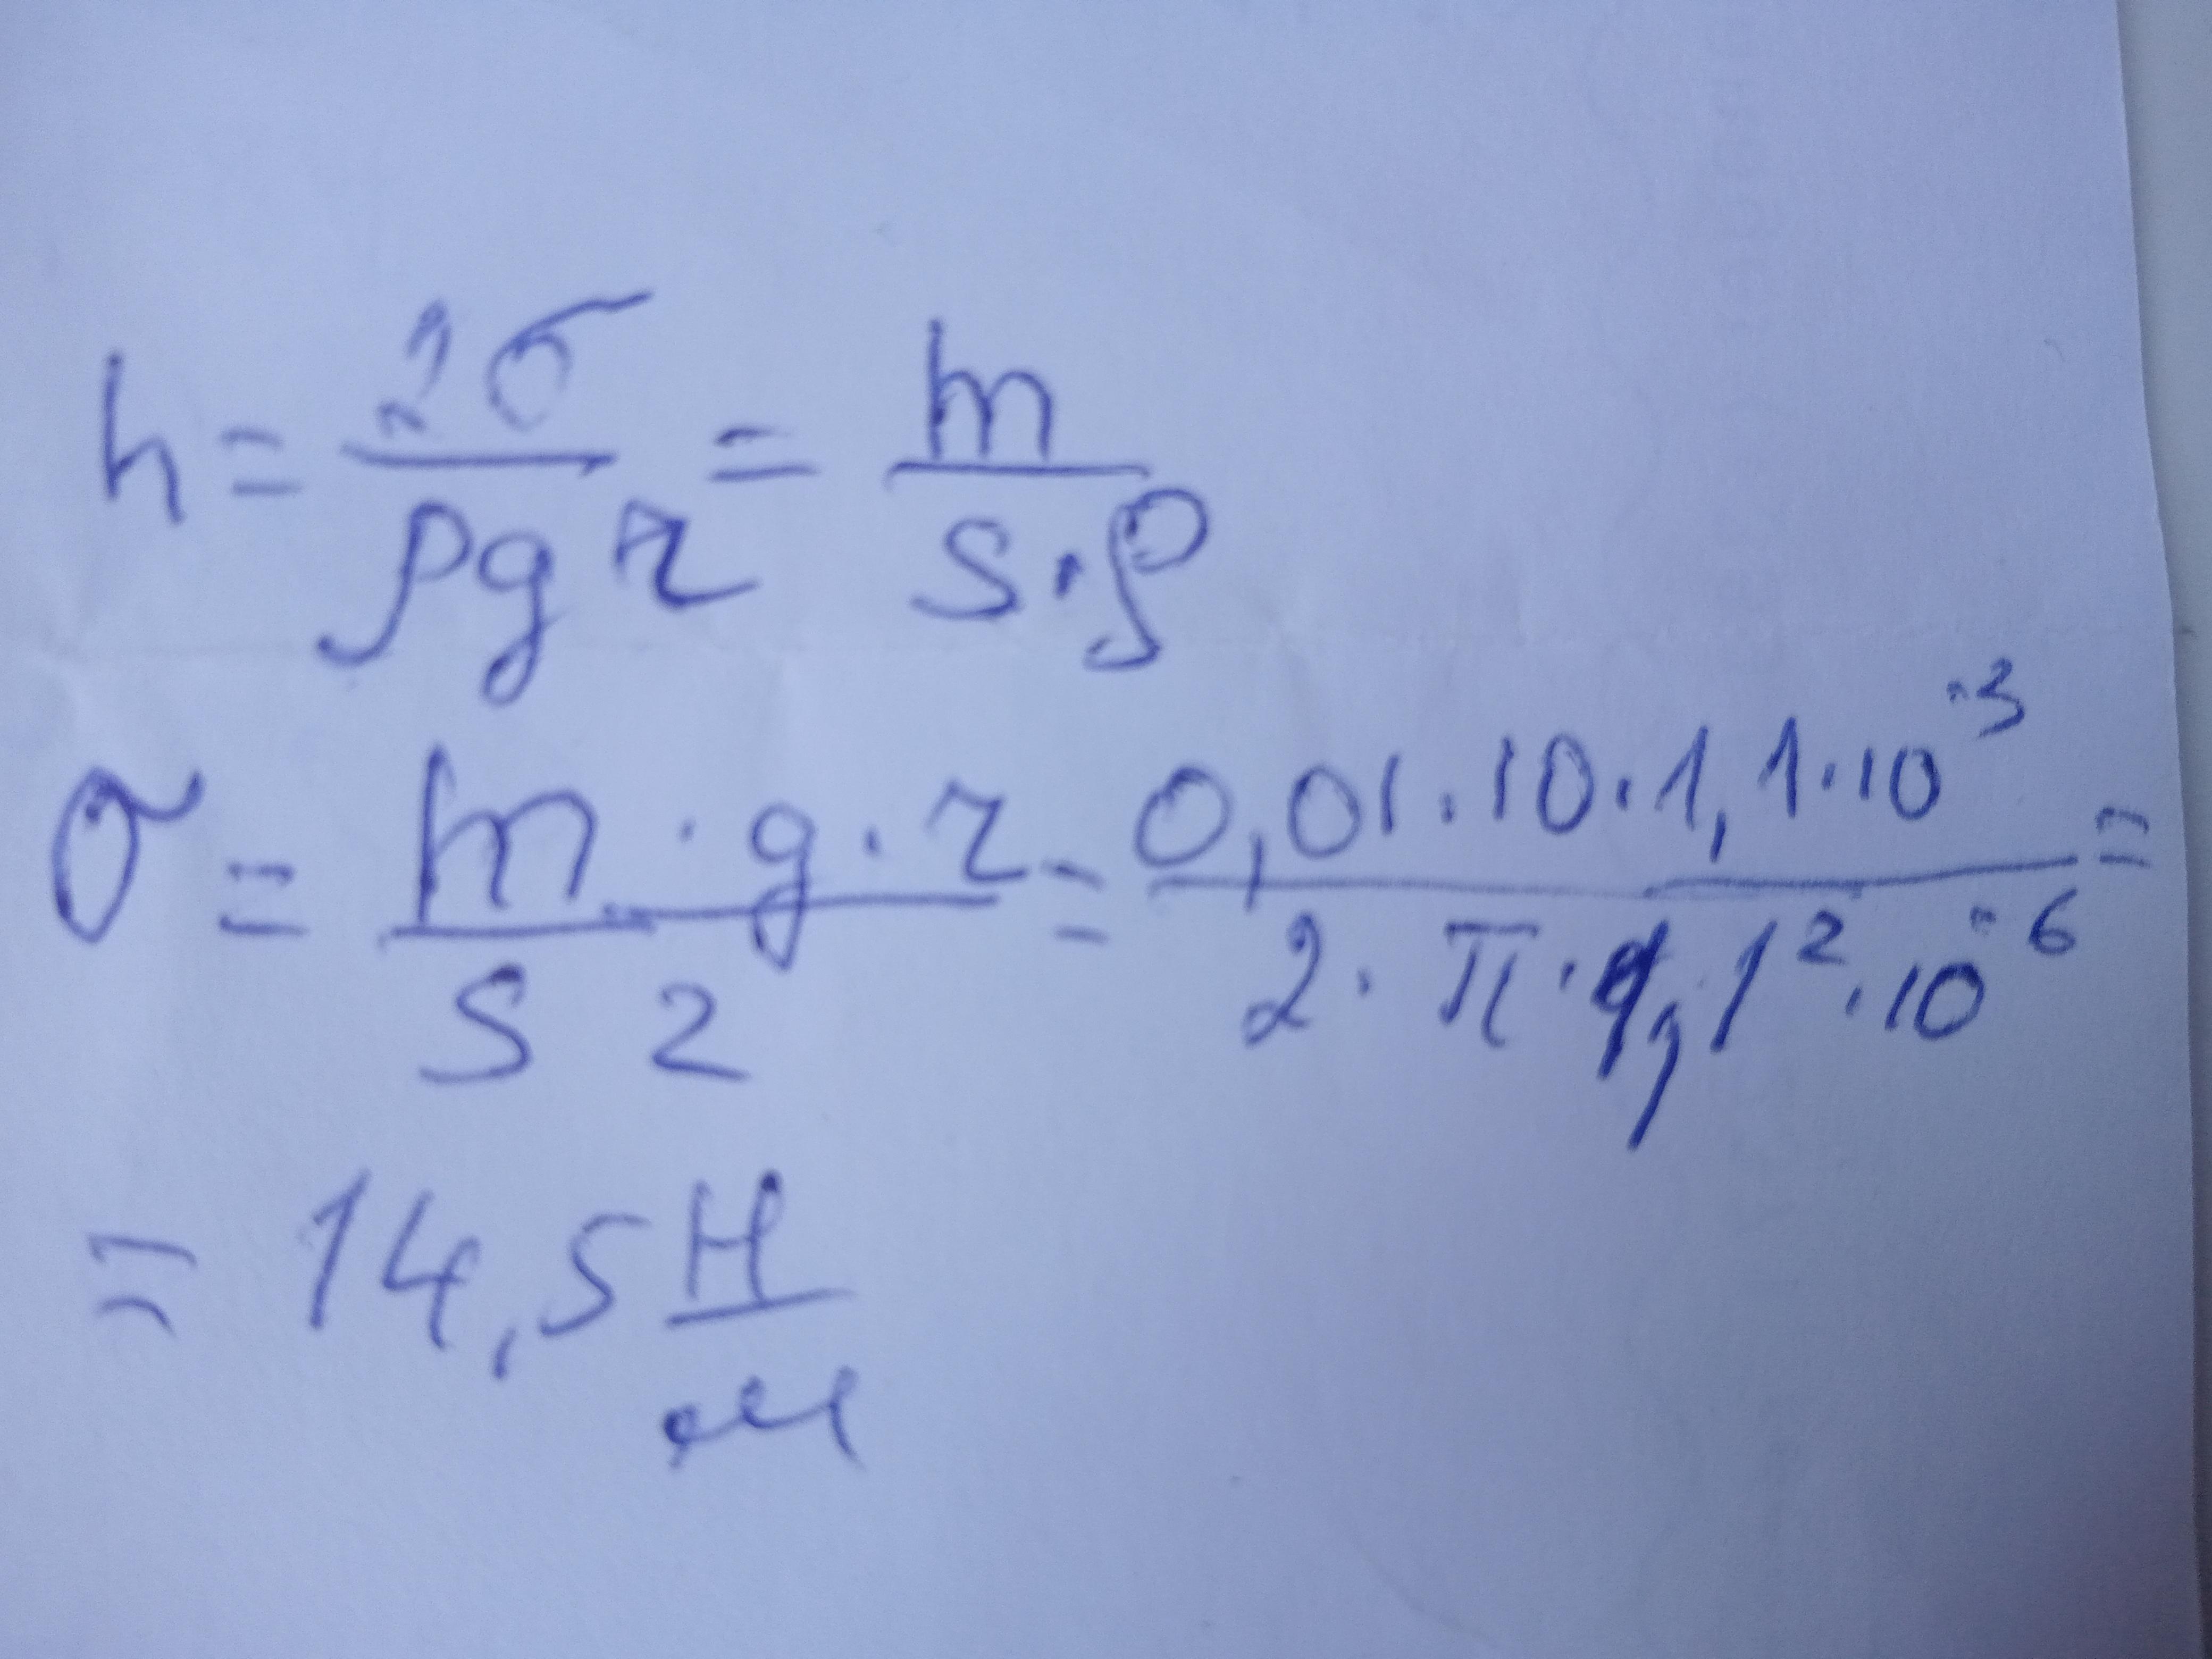 h = 2σ / ρgr = m / S·ρ
σ = m·g·r / S 2 = 0,01·10·1,1·10⁻³ / 2·π·1,1²·10⁻⁶ =
= 14,5 Н/м